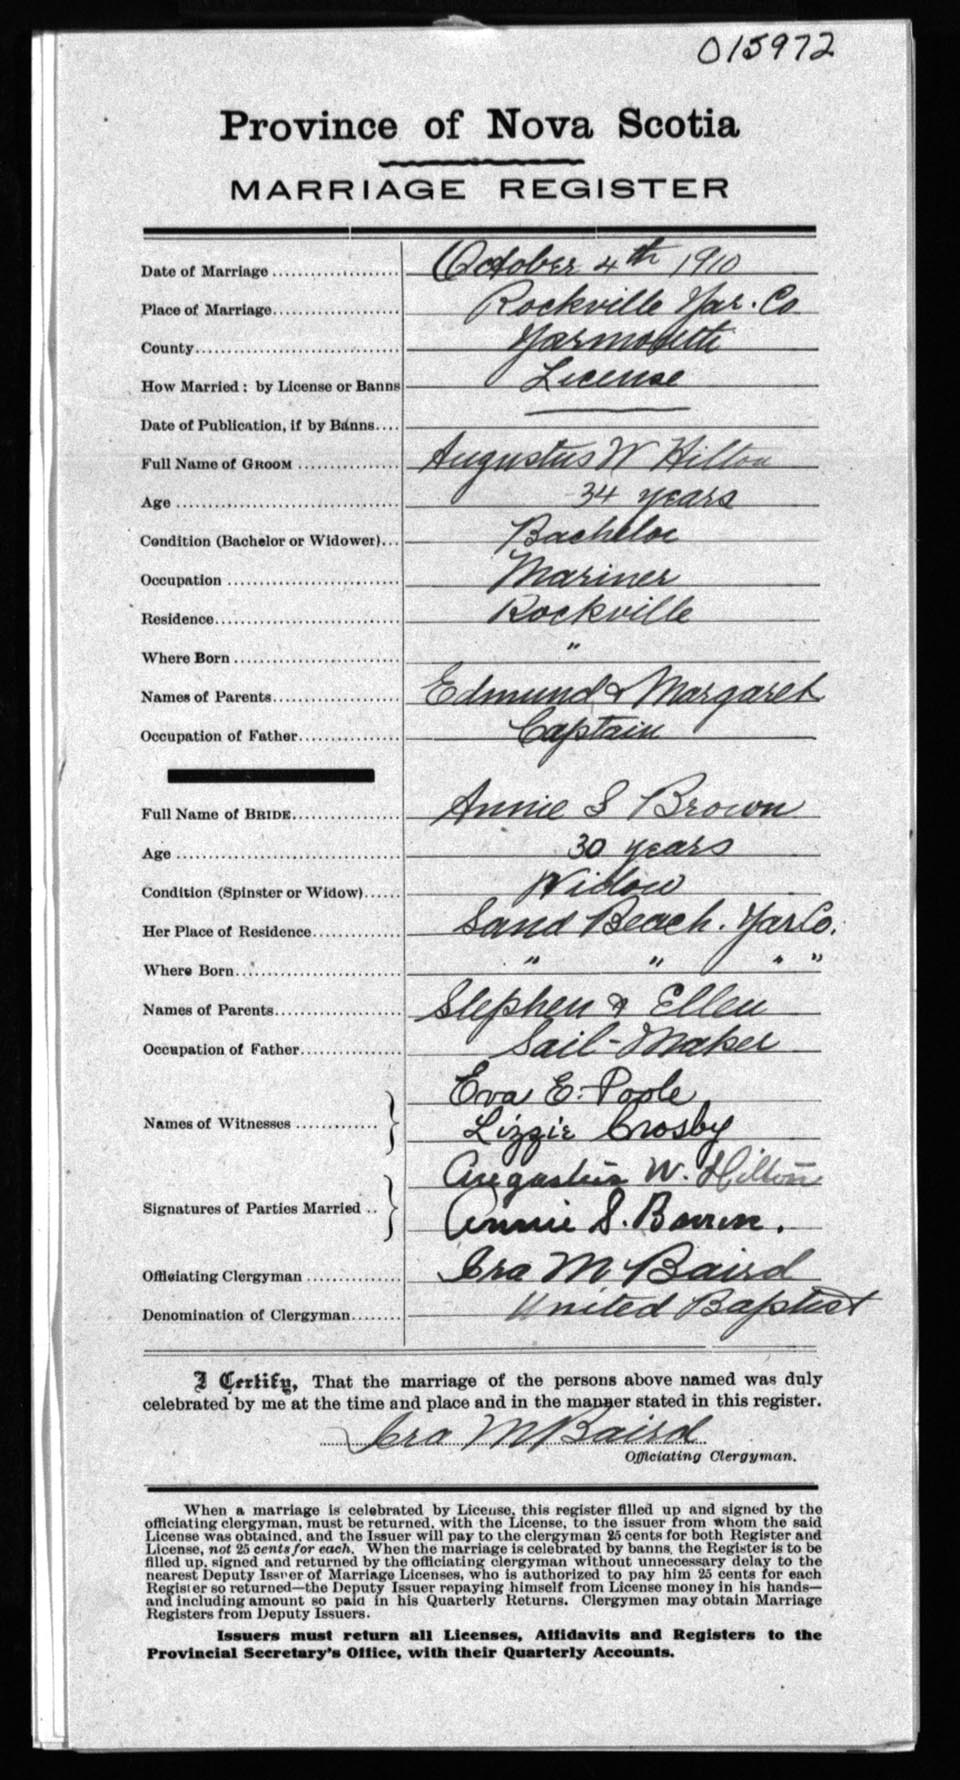 015972
Province of Nova Scotia
MARRIAGE REGISTER
Date of Marriage .................... October 4th 1910
Place of Marriage.................... Rockville Yar. Co
County................................ Yarmouth
How Married: by License or Banns License
Date of Publication, if by Banns.... ——
Full Name of GROOM ................ Augustus W Hilton
Age .................................... 34 years
Condition (Bachelor or Widower)... Bachelor
Occupation ........................... Mariner
Residence............................. Rockville
Where Born .......................... "
Names of Parents.................... Edmund & Margaret
Occupation of Father................ Captain
Full Name of BRIDE................. Annie S Brown
Age .................................... 30 years
Condition (Spinster or Widow)...... Widow
Her Place of Residence.............. Sand Beach. Yar Co.
Where Born.......................... " " " "
Names of Parents.................... Stephen & Ellen
Occupation of Father................ Sail-Maker
Names of Witnesses ............. } Eva E. Poole
Lizzie Crosby
Signatures of Parties Married .. } Augustus W. Hilton
Annie S. Brown.
Officiating Clergyman .............. Ira M Baird
Denomination of Clergyman........ United Baptist
I Certify, That the marriage of the persons above named was duly
celebrated by me at the time and place and in the manner stated in this register.
Ira M Baird
Officiating Clergyman.
When a marriage is celebrated by License, this register filled up and signed by the
officiating clergyman, must be returned, with the License, to the issuer from whom the said
License was obtained, and the Issuer will pay to the clergyman 25 cents for both Register and
License, not 25 cents for each. When the marriage is celebrated by banns, the Register is to be
filled up, signed and returned by the officiating clergyman without unnecessary delay to the
nearest Deputy Issuer of Marriage Licenses, who is authorized to pay him 25 cents for each
Register so returned—the Deputy Issuer repaying himself from License money in his hands—
and including amount so paid in his Quarterly Returns. Clergymen may obtain Marriage
Registers from Deputy Issuers.
Issuers must return all Licenses, Affidavits and Registers to the
Provincial Secretary's Office, with their Quarterly Accounts.